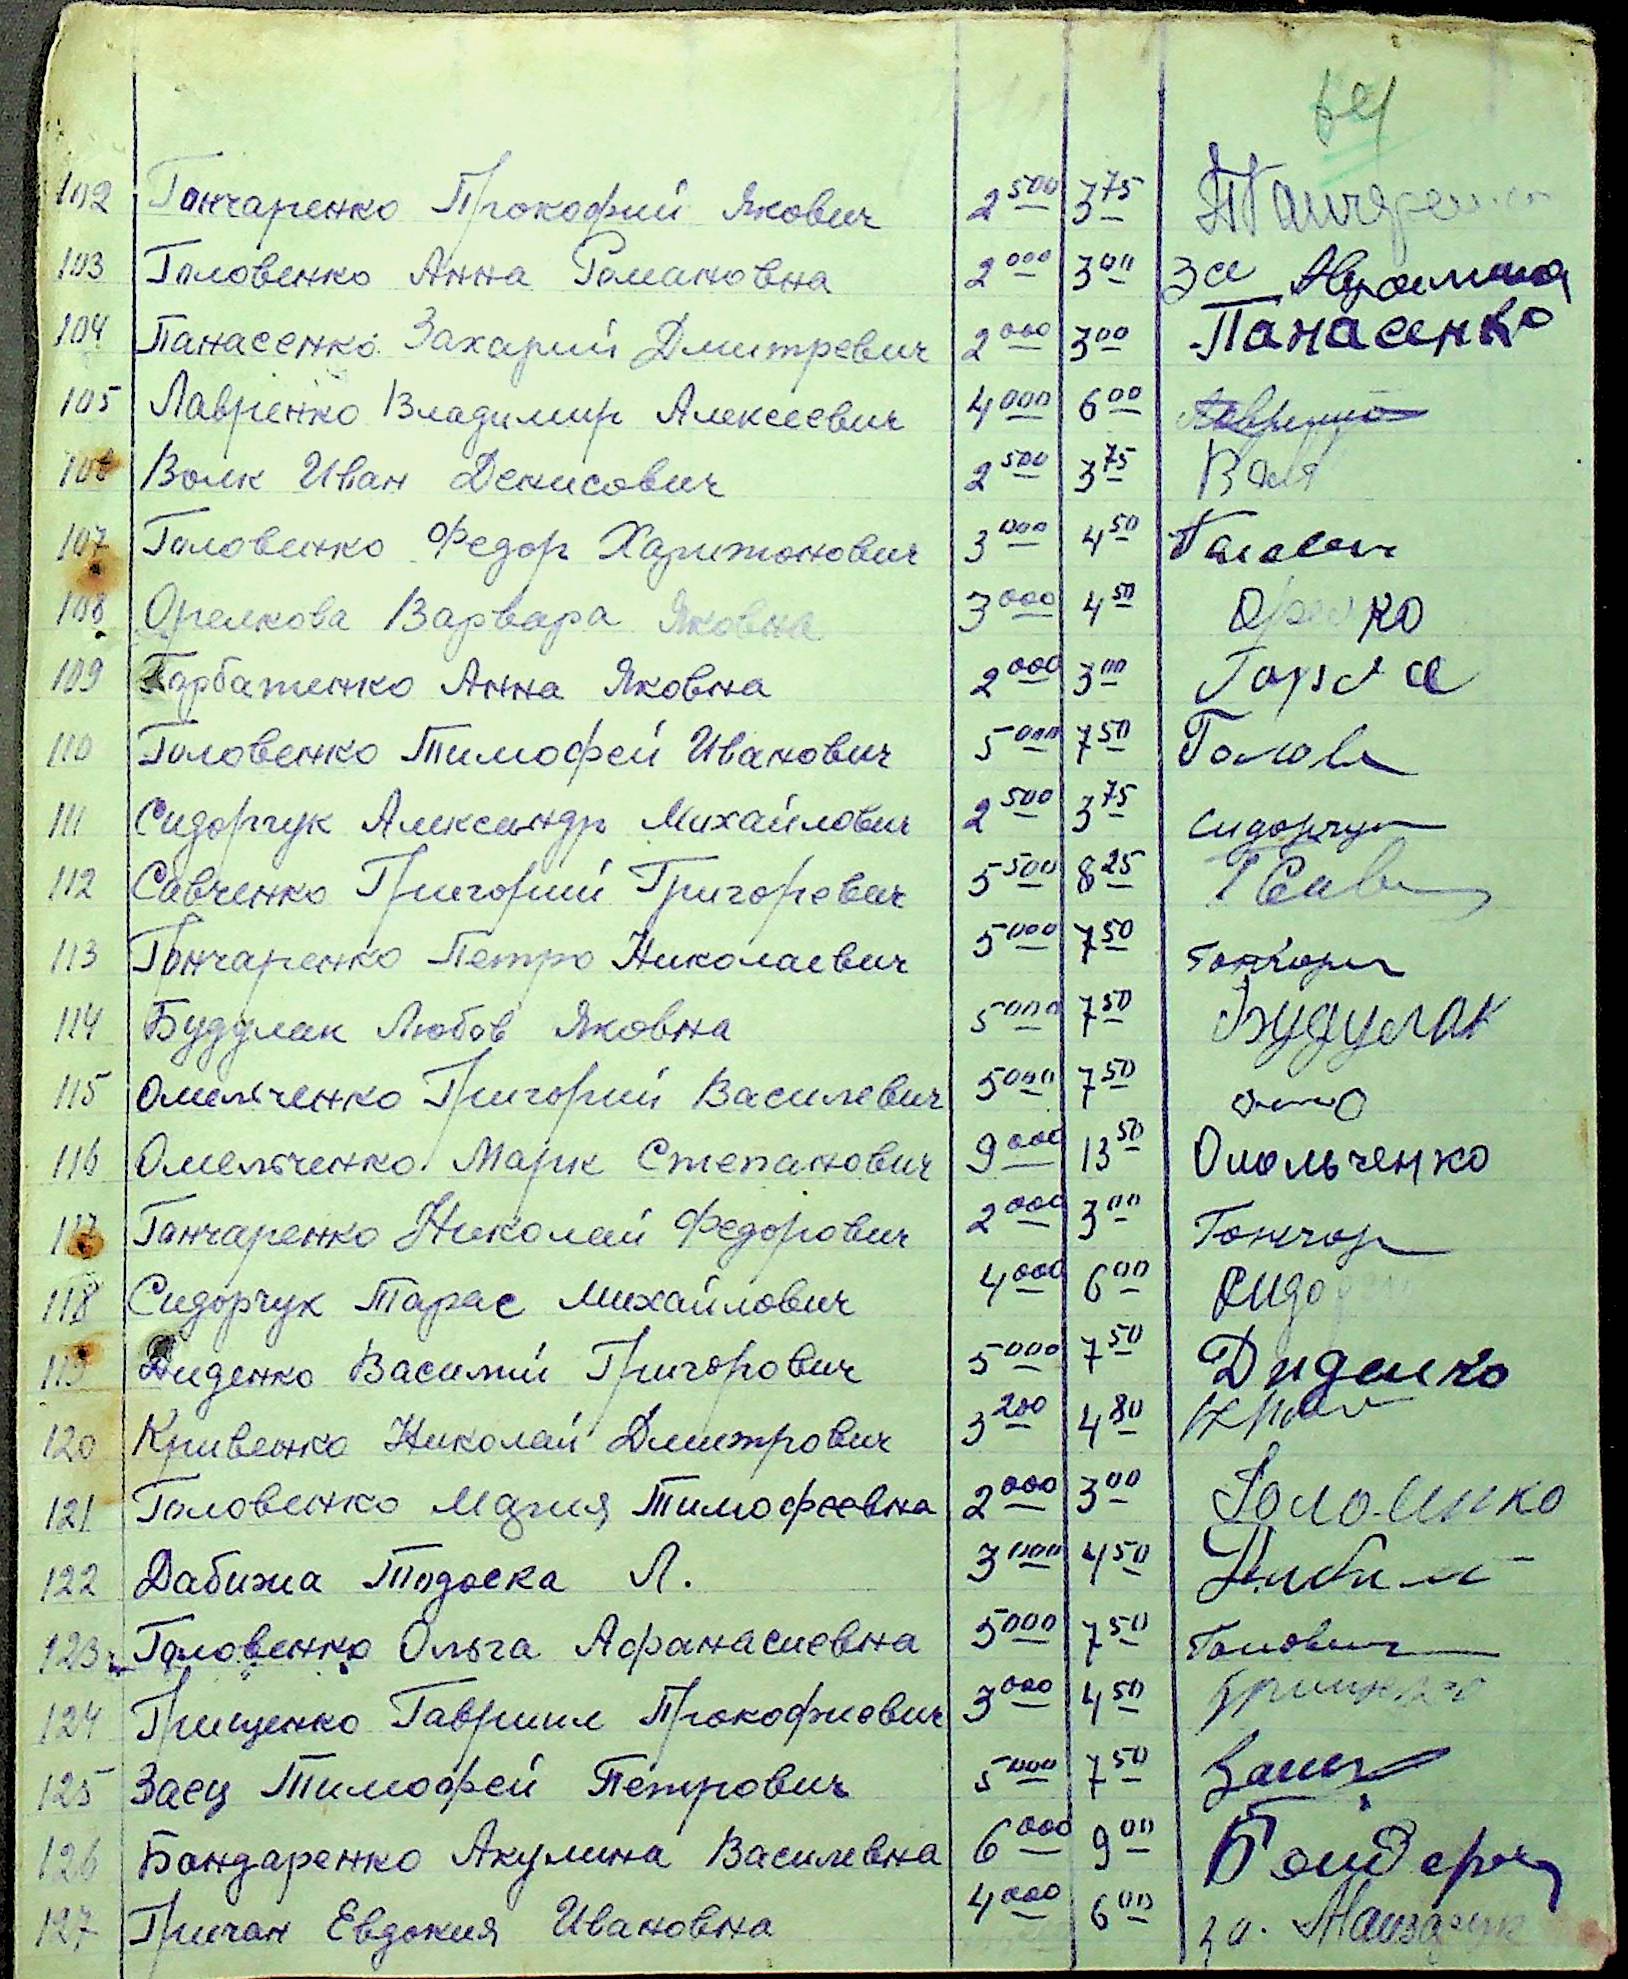 102 Гончаренко Прокофий Якович 2 500 3 75
103 Головенко Анна Романовна 2 000 3 00 За
104 Панасенко Захарий Дмитревич 2 000 3 00 Панасенко
105 Лавренко Владимир Алексеевич 4 000 6 00
106 Волк Иван Денисович 2 500 3 75
107 Головенко Федор Харитонович 3 000 4 50
108 Орелкова Варвара Яковна 3 000 4 50
109 Горбатенко Анна Яковна 2 000 3 00
110 Головенко Тимофей Иванович 5 000 7 50
111 Сидорчук Александр Михайлович 2 500 3 75 Сидорчук
112 Савченко Григорий Григоревич 5 500 8 25
113 Гончаренко Петро Николаевич 5 000 7 50
114 Будулак Любов Яковна 5 000 7 50 Будулак
115 Омельченко Григорий Василевич 5 000 7 50
116 Омельченко Марк Степанович 9 000 13 50 Омольченко
117 Гончаренко Николай Федорович 2 000 3 00 Гончар
118 Сидорчук Тарас Михайлович 4 000 6 00
119 Диденко Василий Григорович 5 000 7 50 Диденко
120 Кривенко Николай Дмитрович 3 200 4 80
121 Головенко Мария Тимофеевна 2 000 3 00
122 Дабижа Тодоска Л. 3 000 4 50
123 Головенко Ольга Афанасиевна 5 000 7 50
124 Грищенко Гавриил Прокофиович 3 000 4 50
125 Заец Тимофей Петрович 5 000 7 50
126 Бондаренко Акулина Василевна 6 000 9 00
127 Гричан Евдокия Ивановна 4 000 6 00 за.